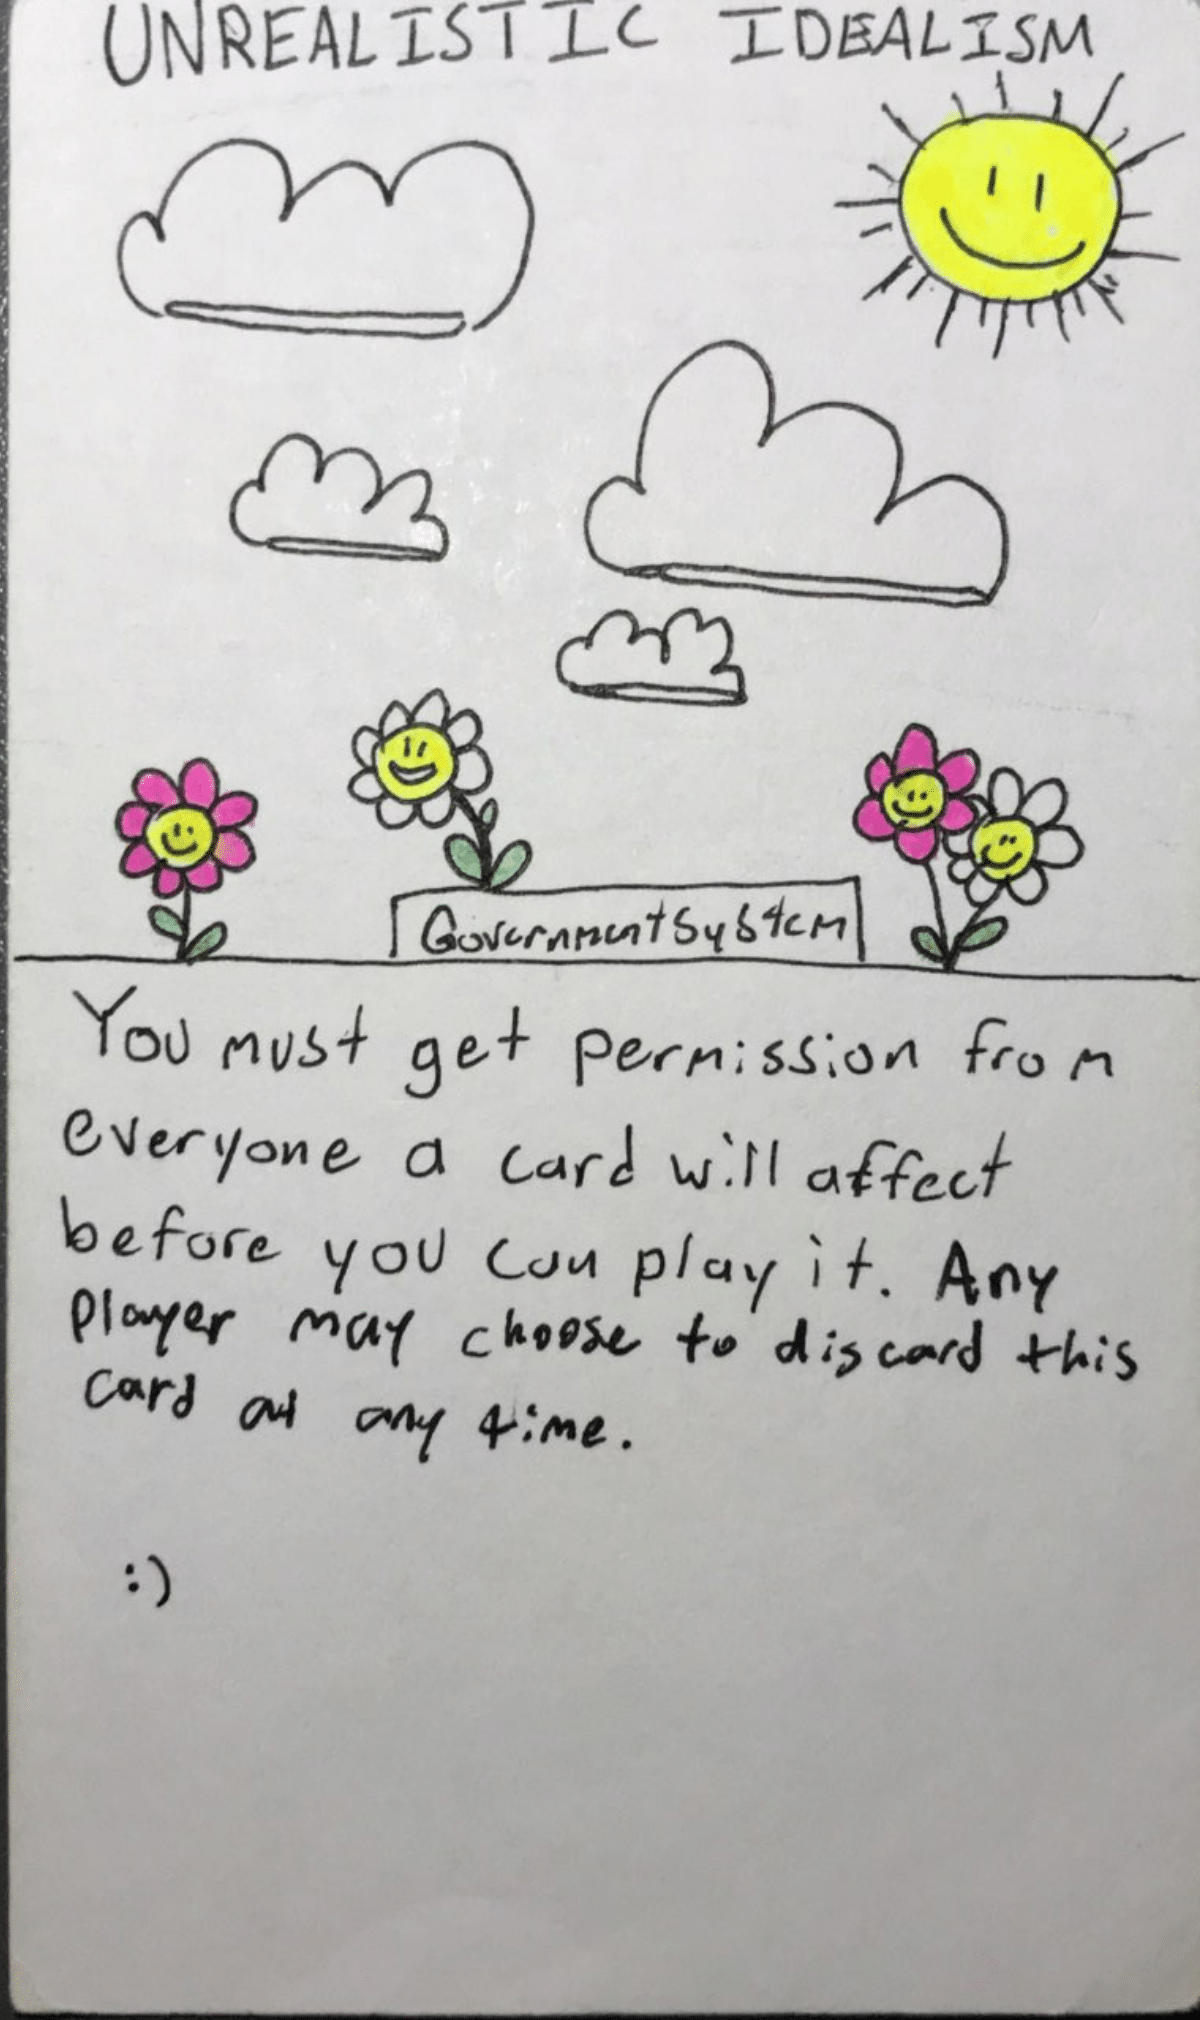 UNREALISTIC IDEALISM
Government System
You must get permission from
everyone a card will affect
before you can play it. Any
Player may choose to discard this
card at any time.
:)